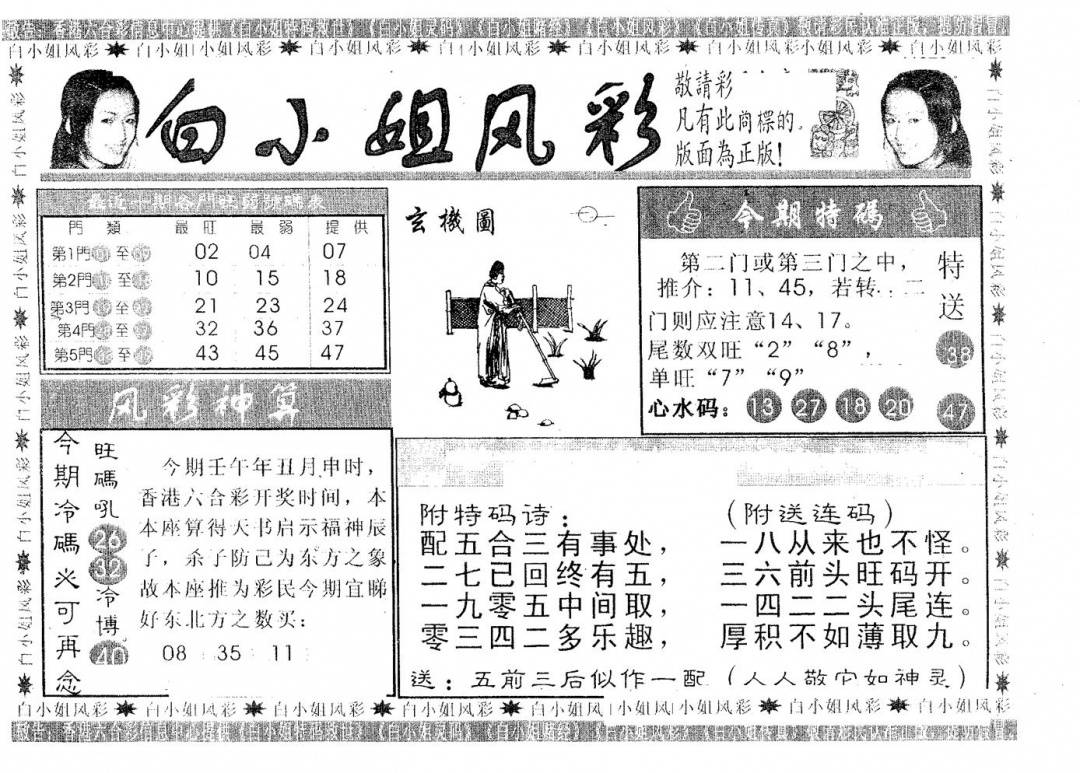 敬告：香港六合彩信息中心提供《白小姐特码救世》《白小姐灵码》《白小姐赌经》《白小姐风彩》《白小姐传真》敬请彩民认准正版，提防假冒
白小姐风彩 白小姐风彩 白小姐风彩 白小姐风彩 白小姐风彩 白小姐风彩 白小姐风彩
白小姐风彩
敬請彩
凡有此商標的
版面為正版!
門類 最旺 最弱 提供
第1門 至 02 04 07
第2門 至 10 15 18
第3門 至 21 23 24
第4門 至 32 36 37
第5門 至 43 45 47
玄機圖
今期特码
第二门或第三门之中，
推介：11、45，若转 二
门则应注意14、17。
尾数双旺“2”“8”，
单旺“7”“9”
心水码：13 27 18 20
特送
38
47
风彩神算
今期冷碼火可再念
旺碼吼26 32冷博40
今期壬午年丑月申时，
香港六合彩开奖时间，本
本座算得天书启示福神辰
子，杀子防己为东方之象
故本座推为彩民今期宜睇
好东北方之数买：
08 35 11
附特码诗：
配五合三有事处，
二七己回终有五，
一九零五中间取，
零三四二多乐趣，
(附送连码)
一八从来也不怪。
三六前头旺码开。
一四二二头尾连。
厚积不如薄取九。
送：五前三后似作一配(人人敬它如神灵)
白小姐风彩 白小姐风彩 白小姐风彩 白小姐风彩 白小姐风 小姐风 小姐风彩 白小姐风彩 白小姐风彩